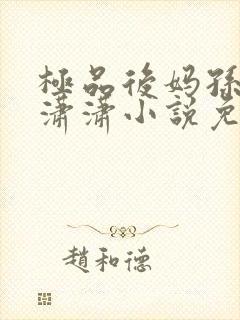 極品後媽孫
瀟瀟小說免
趙和德